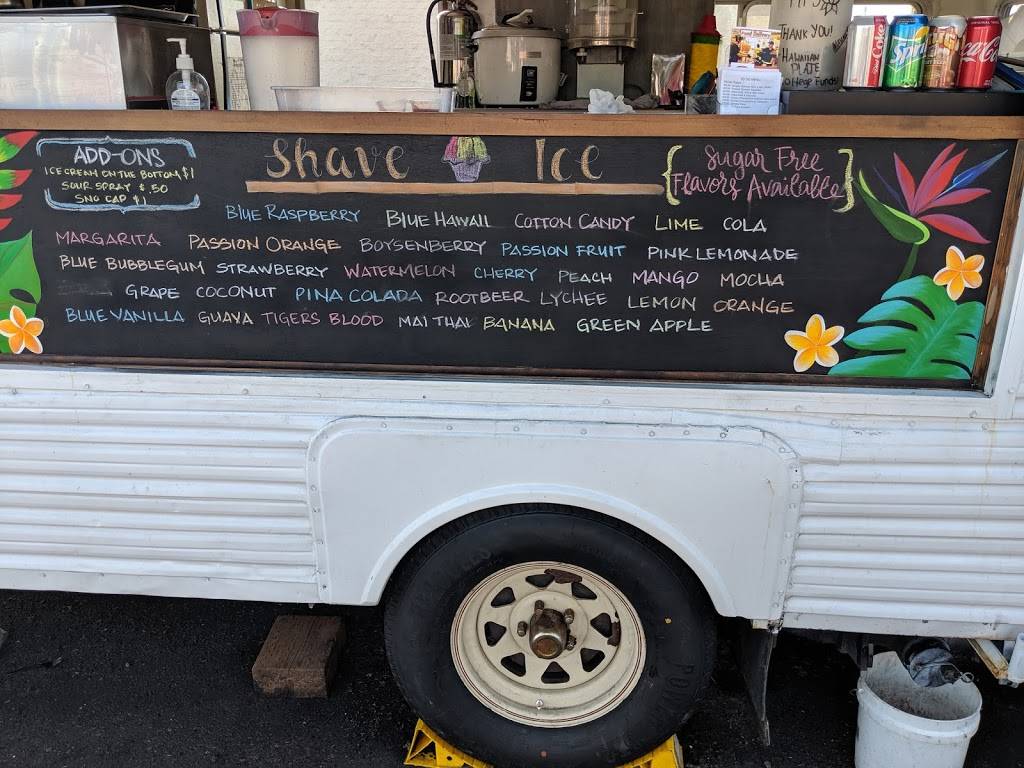 THANK YOU!
HAWAIIAN
PLATE
Coke
Sprite
Coca-Cola
ADD-ONS
ICE CREAM ON THE BOTTOM $1
SOUR SPRAY $.50
SNO CAP $1
Shave Ice
Sugar Free
Flavors Available
BLUE RASPBERRY BLUE HAWAII COTTON CANDY LIME COLA
MARGARITA PASSION ORANGE BOYSENBERRY PASSION FRUIT PINK LEMONADE
BLUE BUBBLEGUM STRAWBERRY WATERMELON CHERRY PEACH MANGO MOCHA
GRAPE COCONUT PINA COLADA ROOTBEER LYCHEE LEMON ORANGE
BLUE VANILLA GUAVA TIGERS BLOOD MAI THAI BANANA GREEN APPLE